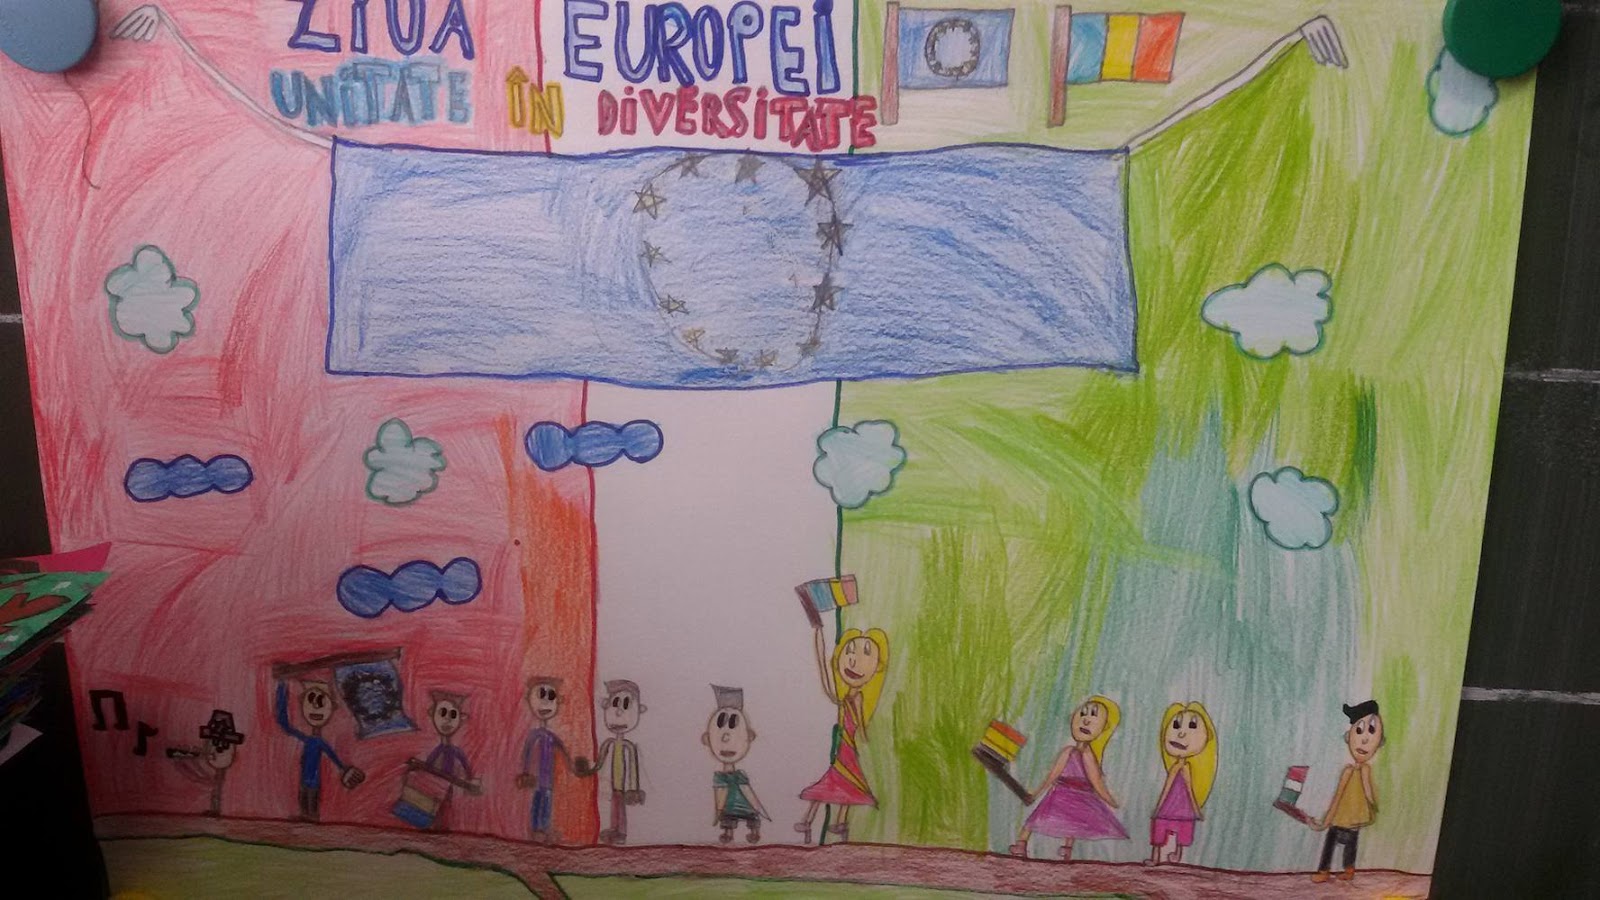 ZIUA EUROPEI
UNITATE ÎN DIVERSITATE